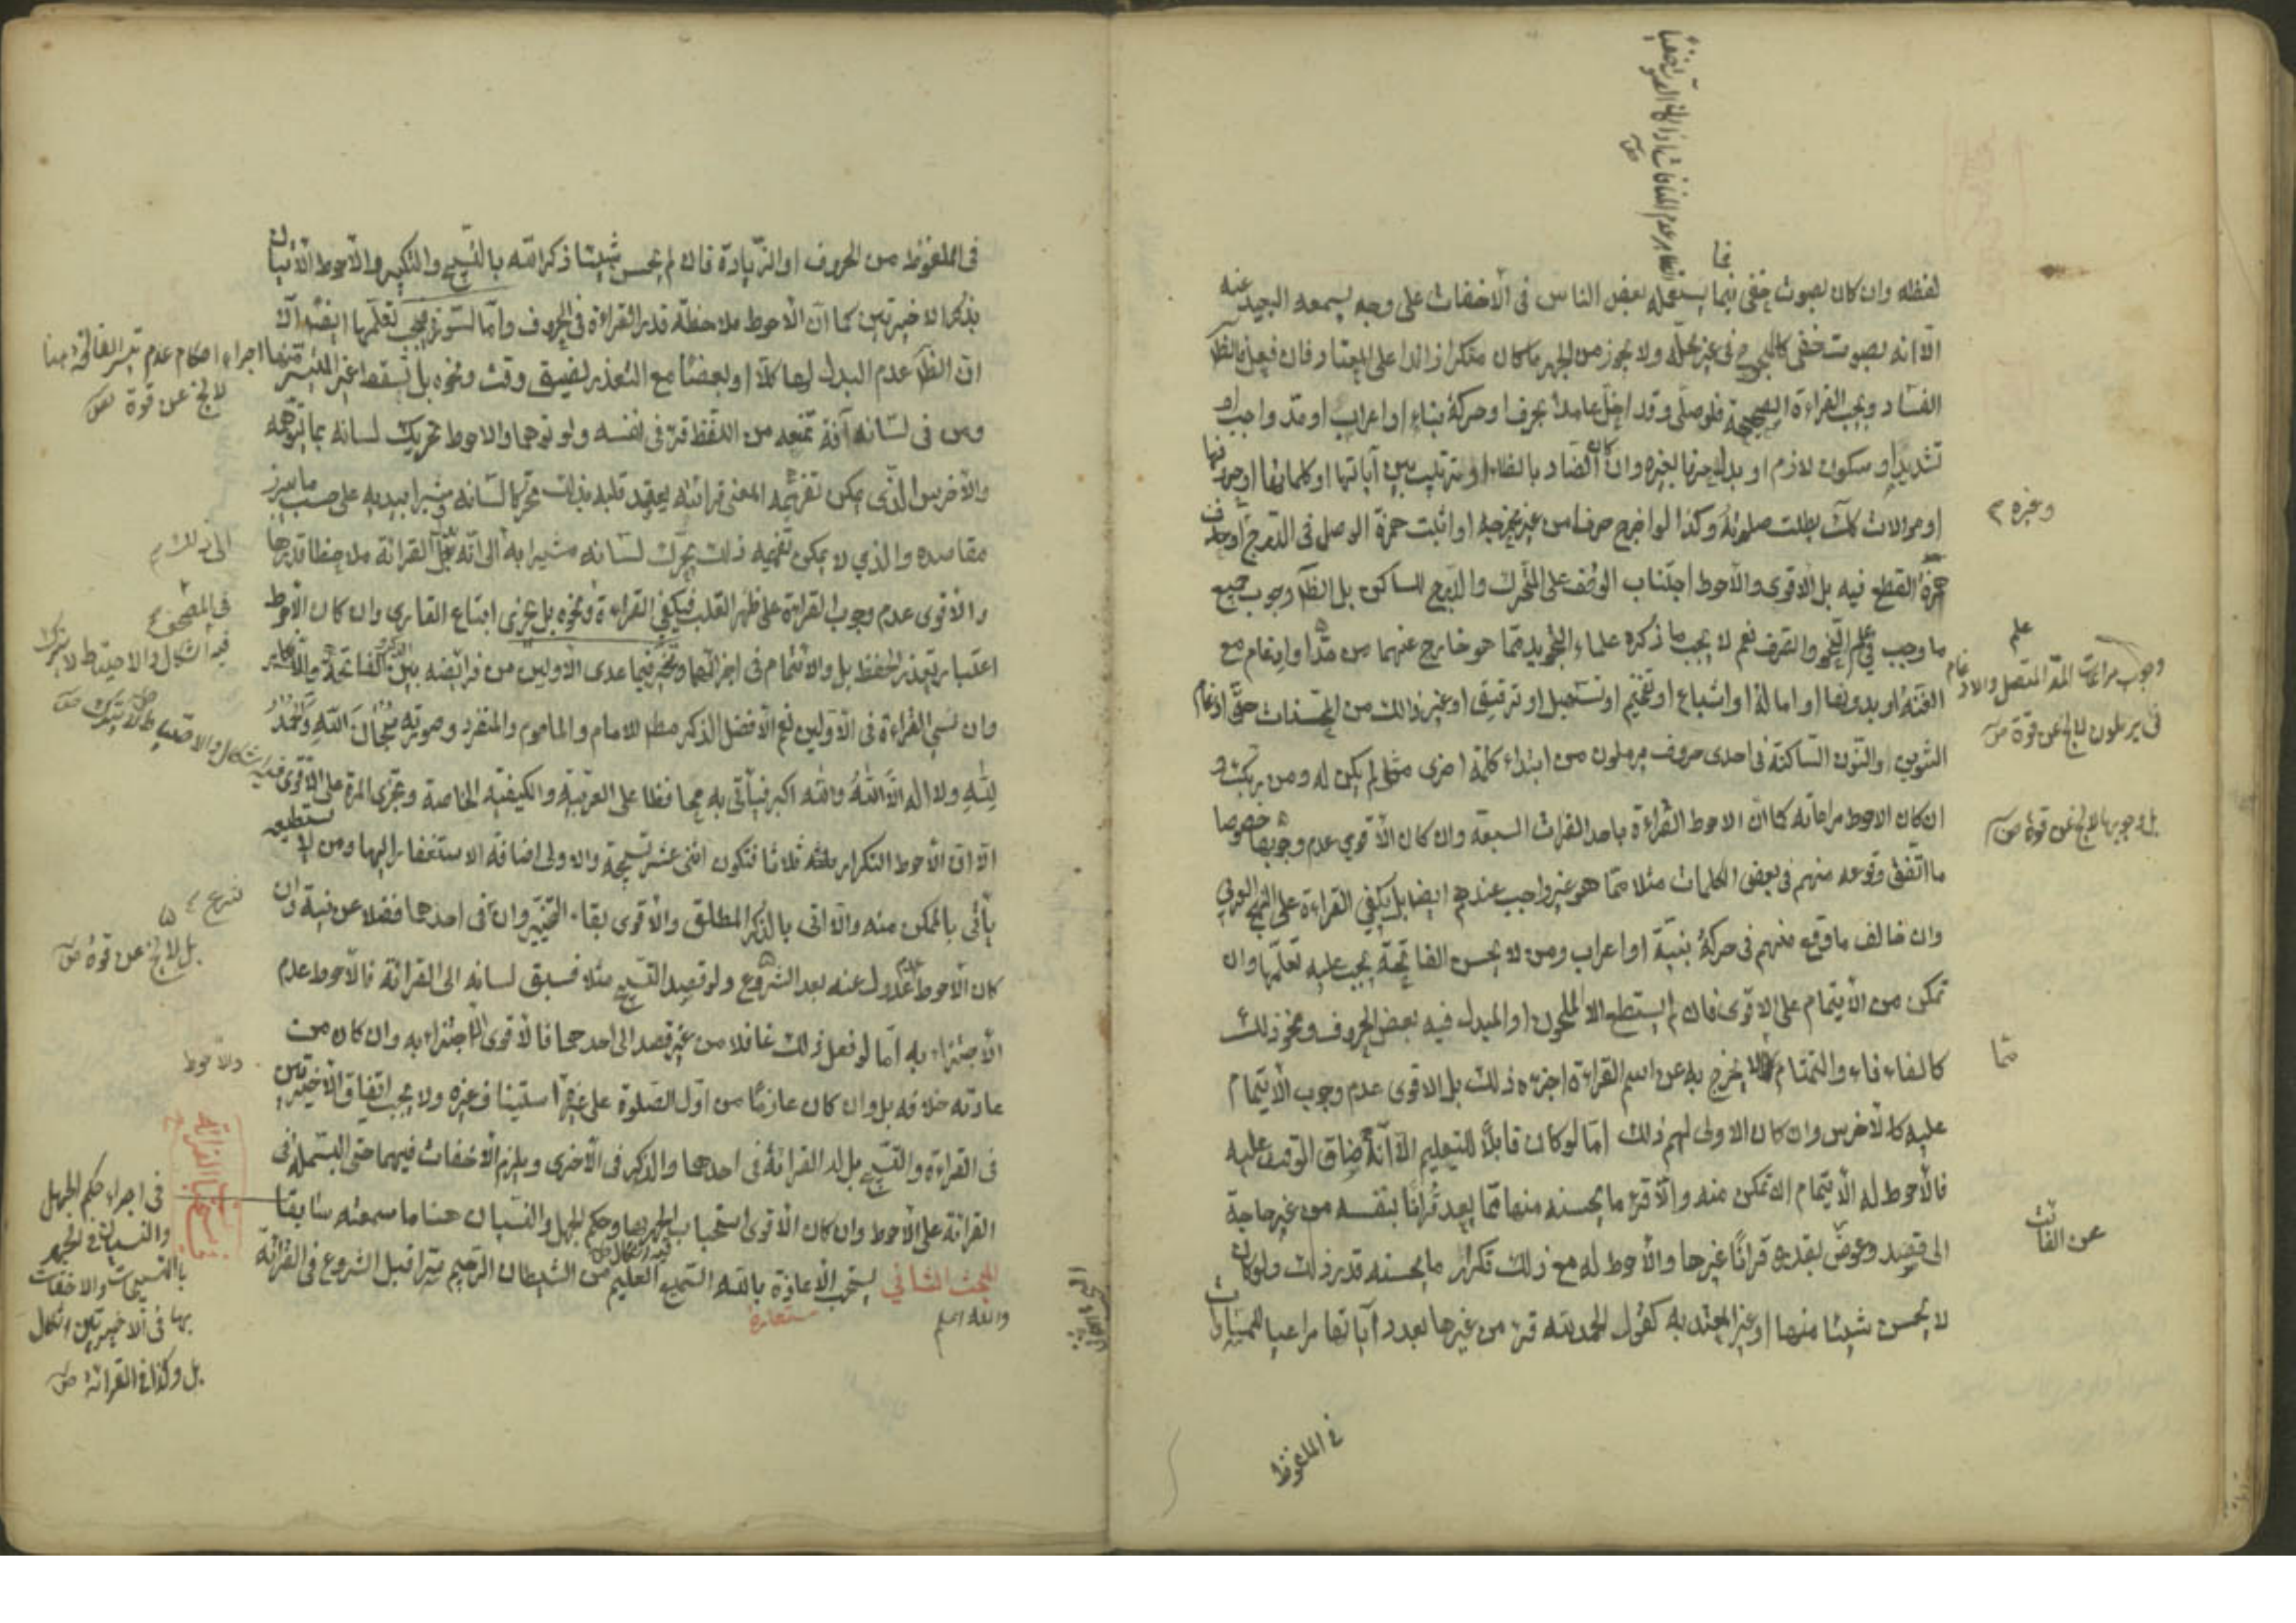 لفظه وان كان بصوت خفى فما يستعمله بعض الناس فى الاخفات على وجه يسمعه البعيد عنه
الا انه بصوت خفى كالمبحوح فى غير محله ولا يجوز من الجهر ما كان متكرا زائدا على المعتاد فان فعل فالظاهر
الفساد ويجب القراءة الصحيحة فلو صلى وقد اخل عامدا بحرف او حركة بناء او اعراب او مد واجب او
تشديد او سكون لازم او بدل حرفا بغيره وان كان الضاد بالظاء او بترتيب بين آياتها او كلماتها او حروفها
او موالات كلك بطلت صلوته وكذا لو اخرج حرفا من غير مخرجه او اثبت همزة الوصل فى الدرج او حذف
همزة القطع فيه بل الاقوى والاحوط اجتناب الوقف على المتحرك والدرج للساكن بل الظاهر وجوب جميع
ما وجب فى علم النحو والصرف نعم لا يجب ما ذكره علماء التجويد مما هو خارج عنهما من مد او ادغام مع
الغنة او بدونها او امالة او اشباع او تفخيم او تسهيل او ترقيق او غير ذالك من المحسنات حتى ادغام
التنوين او النون الساكنة فى احدى حروف يرملون من ابتداء كلمة اخرى مثل لم يكن له ومن ربك و
ان كان الاحوط مراعاته كما ان الاحوط القراءة باحد القرات السبعة وان كان الاقوي عدم وجوبها خصوصا
ما اتفق وقوعه منهم فى بعض الكلمات مثلا مما هو غير واجب عندهم ايضا بل يكفي القراءة على النهج العربي
وان خالف ما وقع منهم فى حركة بنية او اعراب ومن لا يحسن الفاتحة يجب عليه تعلمها وان
تمكن من الايتمام على الاقوى فان لم يستطع الا الملحون او المبدل فيه بعض الحروف ونحو ذلك
كالفاء فاء والتمتام مما لا يخرج به عن اسم القراءة اجزءه ذلك بل الاقوى عدم وجوب الايتمام
عليه كالاخرس وان كان الاولى لهم ذلك اما لو كان قابلا للتعليم الا انه ضاق الوقت عليه
فالاحوط له الايتمام ان تمكن منه والا قرء ما يحسنه منها مما يعد قرانا بنفسه من غير حاجة
الى قصد وعوض بقدره قرانا غيرها والاحوط له مع ذلك تكرار ما يحسنه قدر ذلك ولو كان
لا يحسن شيئا منها او غير المعتد به كقول الحمد لله قرء من غيرها بعدد آياتها مراعيا للمساوات
فى الملفوظ
وغيره
علم
وجوب مراعات المد المتصل والادغام
فى يرملون لا يخ عن قوة ص
بل وجوبها لا يخ عن قوة ص
مما
عن الفائت
فى الملفوظ من الحروف او الزيادة فان لم يحسن شيئا ذكر الله بالتسبيح والتكبير والاحوط الاتيان
بذكر الاخيرتين كما ان الاحوط ملاحظة قدر القراءة فى الحروف واما السورة فيجب تعلمها ايضا الا
ان الظاهر عدم البدل لها كلا او بعضا مع التعذر لضيق وقت ونحوه بل تسقط غير المتيسر منها
ومن فى لسانه آفة تمنعه من اللفظ قرء فى نفسه ولو توهما والاحوط تحريك لسانه بما توهمه
والاخرس الذى يمكن تفهيمه المعنى قرائته يعقد قلبه بذلك محركا لسانه مشيرا بيده على حسب ما يبرز
مقاصده والذي لا يمكن تفهيمه ذلك يحرك لسانه مشيرا به الى انه بدل القرائة ملاحظا قدرها
والاقوى عدم وجوب القراءة على ظهر القلب فيكفي القراءة ونحوه بل يجزى اتباع القاري وان كان الاحوط
اعتبار تعذر الحفظ بل والائتمام فى اجزائها وتخير فيما عدى الاولين من فرائضه بين الفاتحة والذكر
وان نسي القراءة فى الاولين نعم الافضل الذكر مط للامام والماموم والمنفرد وصورته سبحان الله والحمد
لله ولا اله الا الله والله اكبر فيأتى به محافظا على العربية والكيفية الخاصة وتجزى المرة على الاقوى
الا ان الاحوط التكرار ثلثا فتكون اثنى عشر تسبيحة والاولى اضافة الاستغفار اليها ومن لا يستطيعه
يأتى بالممكن منه والا اتى بالذكر المطلق والاقوى بقاء التخيير وان اتى احدهما فضلا عن نية وان
كان الاحوط عدم العدول عنه بعد الشروع ولو قصد التسبيح مثلا فسبق لسانه الى القرائة فالاحوط عدم
الاجتزاء به اما لو فعل ذلك غافلا من غير قصد الى احدهما فالاقوى الاجتزاء به وان كان من
عادته خلافه بل وان كان عازما من اول الصلوة على غيره استينافه غيره ولا يجب اتفاق الاخيرتين
فى القراءة والتسبيح بل له القرائة فى احدهما والذكر فى الاخرى ويلزم الاخفات فيهما حتى البسملة فى
القرائة على الاحوط وان كان الاقوى استحباب الجهر بها وحكم الجهل والنسيان هنا ما سمعته سابقا
المبحث الثانى يستحب الاعاذة بالله السميع العليم من الشيطان الرجيم سرا قبل الشروع فى القرائة
استعاذة
والله اعلم
اجراء احكام عدم تيسر الفاتحة هنا
لا يخ عن قوة ص
الى ذلك
فى المصحف
فيه اشكال والاحتياط لا يترك
فيه اشكال والاحتياط لا يترك ص
شرع
بل لا يخ عن قوة ص
والاحوط
فى اجراء حكم الجهل
والنسيان فى الجهر
بالتسبيحات والاخفات
بها فى الاخيرتين اشكال
بل وكذا فى القرائة ص